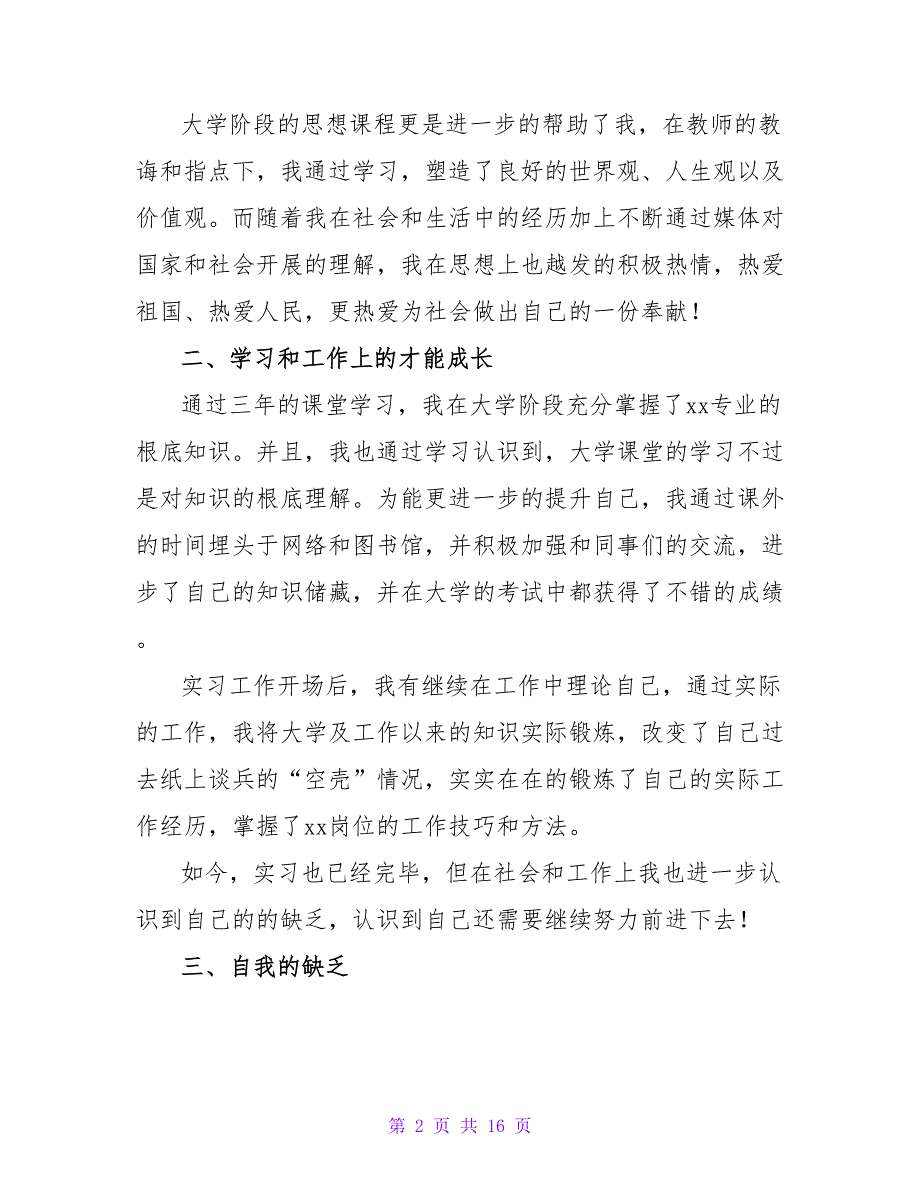 大学阶段的思想课程更是进一步的帮助了我，在教师的教
诲和指点下，我通过学习，塑造了良好的世界观、人生观以及
价值观。而随着我在社会和生活中的经历加上不断通过媒体对
国家和社会开展的理解，我在思想上也越发的积极热情，热爱
祖国、热爱人民，更热爱为社会做出自己的一份奉献！
二、学习和工作上的才能成长
通过三年的课堂学习，我在大学阶段充分掌握了xx专业的
根底知识。并且，我也通过学习认识到，大学课堂的学习不过
是对知识的根底理解。为能更进一步的提升自己，我通过课外
的时间埋头于网络和图书馆，并积极加强和同事们的交流，进
步了自己的知识储藏，并在大学的考试中都获得了不错的成绩
。
实习工作开场后，我有继续在工作中理论自己，通过实际
的工作，我将大学及工作以来的知识实际锻炼，改变了自己过
去纸上谈兵的“空壳”情况，实实在在的锻炼了自己的实际工
作经历，掌握了xx岗位的工作技巧和方法。
如今，实习也已经完毕，但在社会和工作上我也进一步认
识到自己的的缺乏，认识到自己还需要继续努力前进下去！
三、自我的缺乏
第 2 页 共 16 页